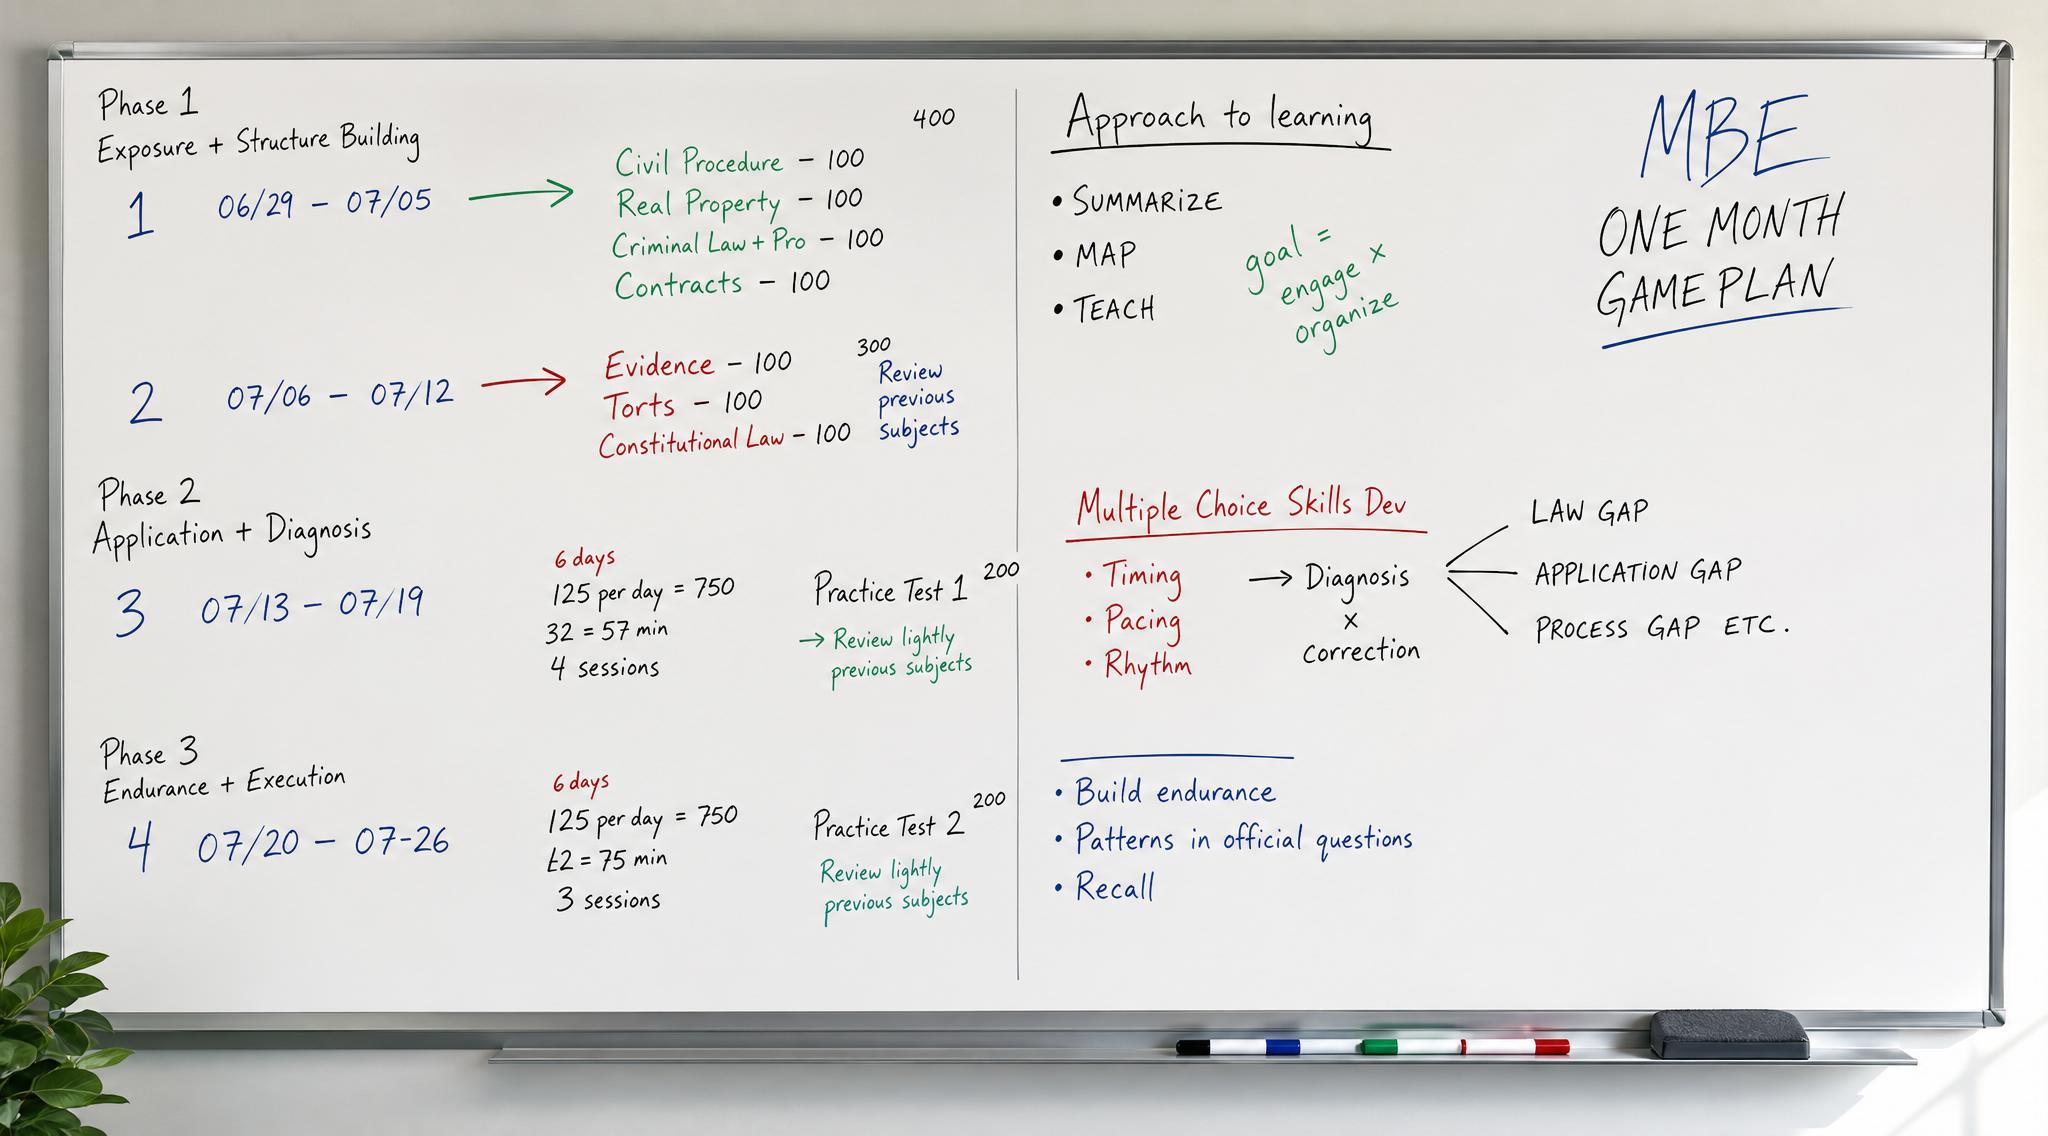 Phase 1
Exposure + Structure Building
400
1 06/29 – 07/05
Civil Procedure – 100
Real Property – 100
Criminal Law + Pro – 100
Contracts – 100
2 07/06 – 07/12
Evidence – 100
Torts – 100
Constitutional Law – 100
300
Review
previous
subjects
Phase 2
Application + Diagnosis
3 07/13 – 07/19
6 days
125 per day = 750
32 = 57 min
4 sessions
Practice Test 1 200
→ Review lightly
previous subjects
Phase 3
Endurance + Execution
4 07/20 – 07-26
6 days
125 per day = 750
= 75 min
3 sessions
Practice Test 2 200
Review lightly
previous subjects
Approach to learning
• SUMMARIZE
• MAP
• TEACH
goal =
engage x
organize
MBE
ONE MONTH
GAME PLAN
Multiple Choice Skills Dev
• Timing
• Pacing
• Rhythm
→ Diagnosis
x
correction
LAW GAP
APPLICATION GAP
PROCESS GAP ETC.
• Build endurance
• Patterns in official questions
• Recall